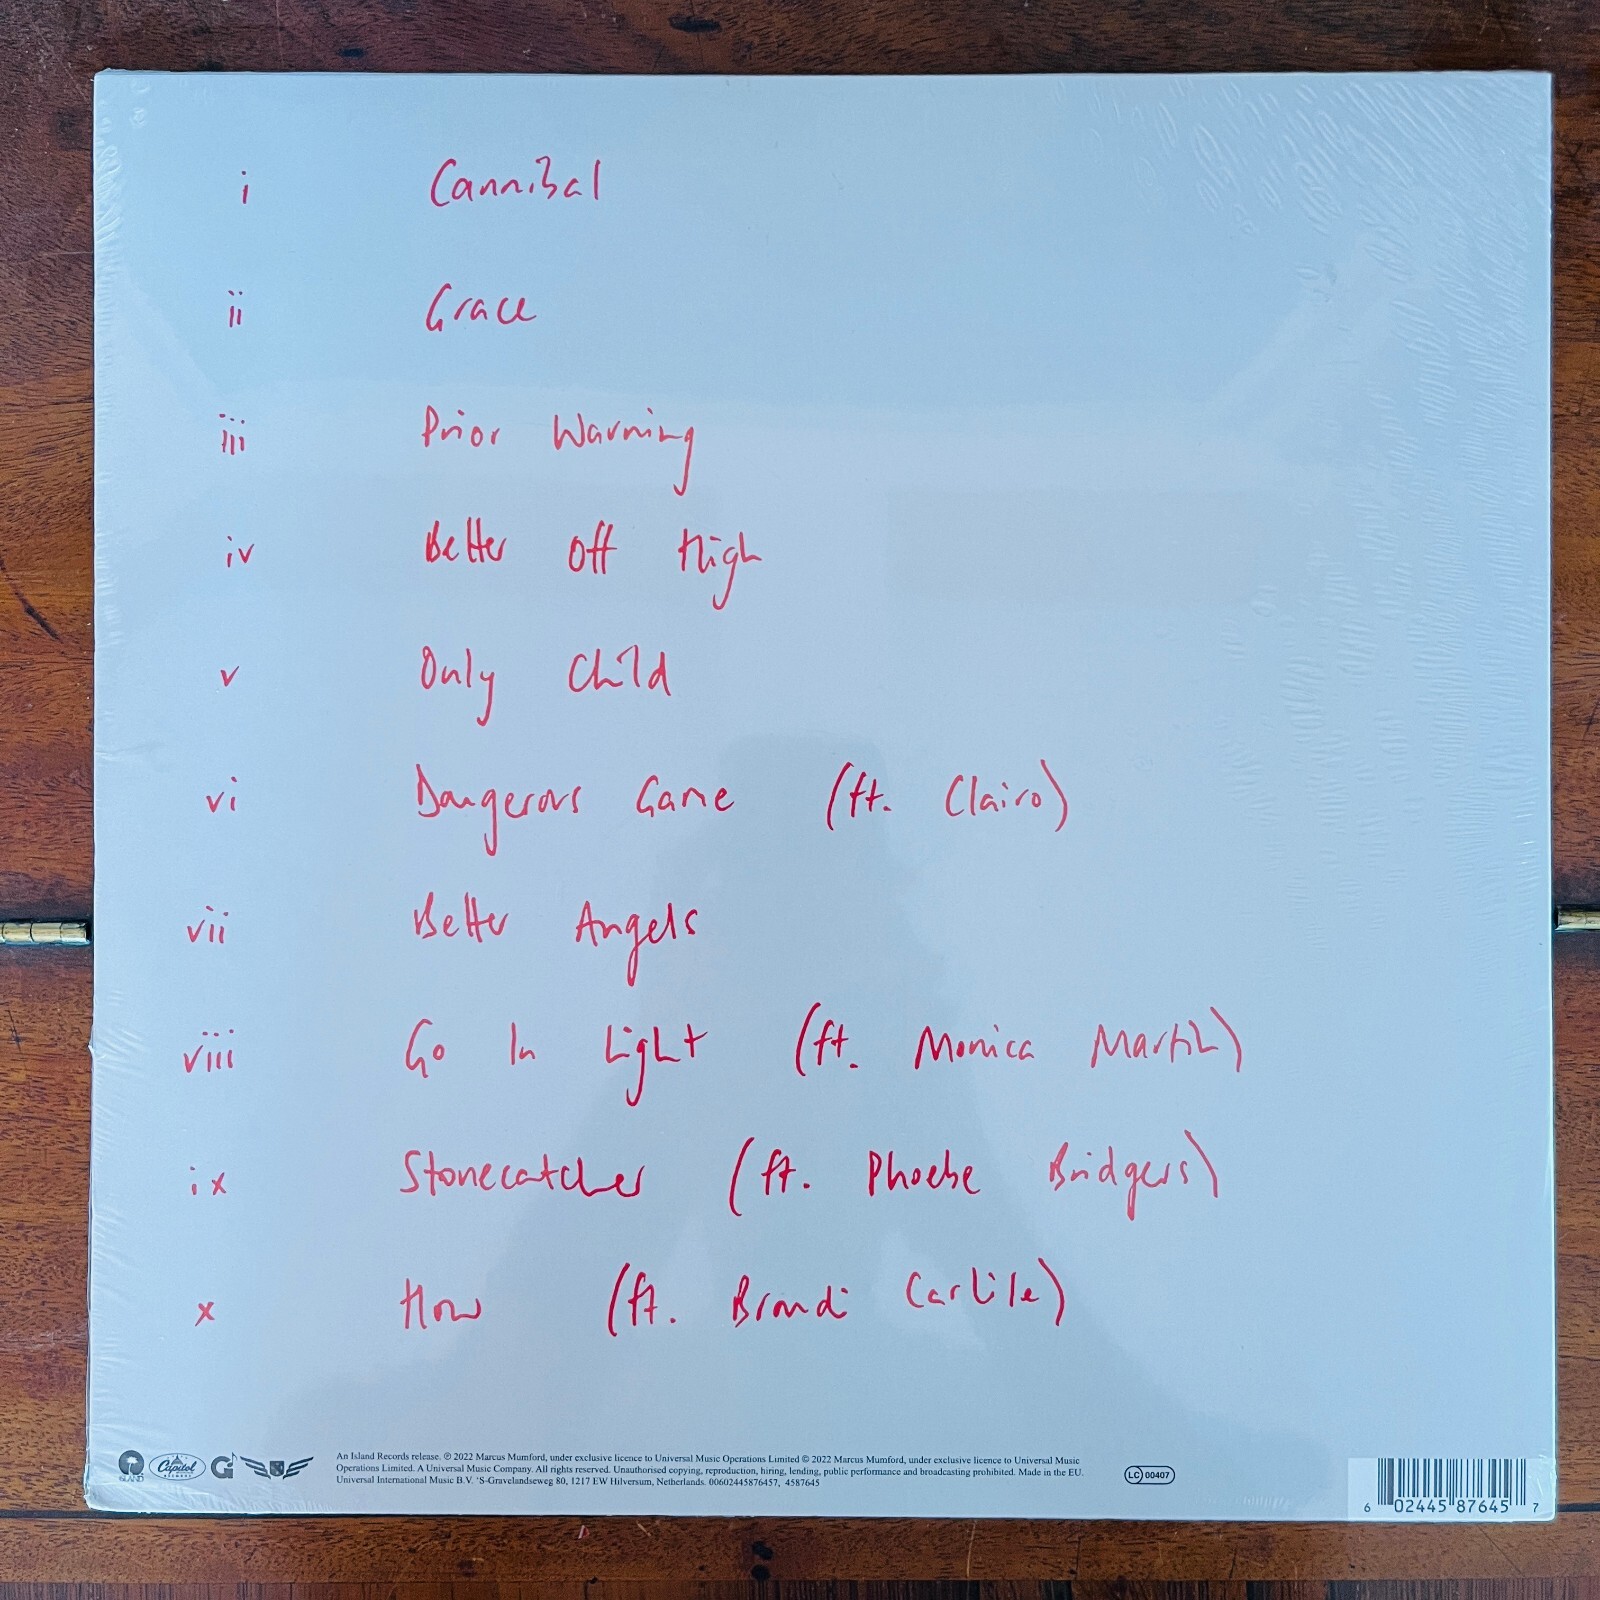 i Cannibal
ii Grace
iii Prior Warning
iv Better Off High
v Only Child
vi Dangerous Game (ft. Clairo)
vii Better Angels
viii Go In Light (ft. Monica Martin)
ix Stonecatcher (ft. Phoebe Bridgers)
x How (ft. Brandi Carlile)
ISLAND Capitol RECORDS G
An Island Records release. ℗ 2022 Marcus Mumford, under exclusive licence to Universal Music Operations Limited © 2022 Marcus Mumford, under exclusive licence to Universal Music
Operations Limited. A Universal Music Company. All rights reserved. Unauthorised copying, reproduction, hiring, lending, public performance and broadcasting prohibited. Made in the EU.
Universal International Music B.V. 'S-Gravelandseweg 80, 1217 EW Hilversum, Netherlands. 00602445876457, 4587645
LC 00407
6 02445 87645 7